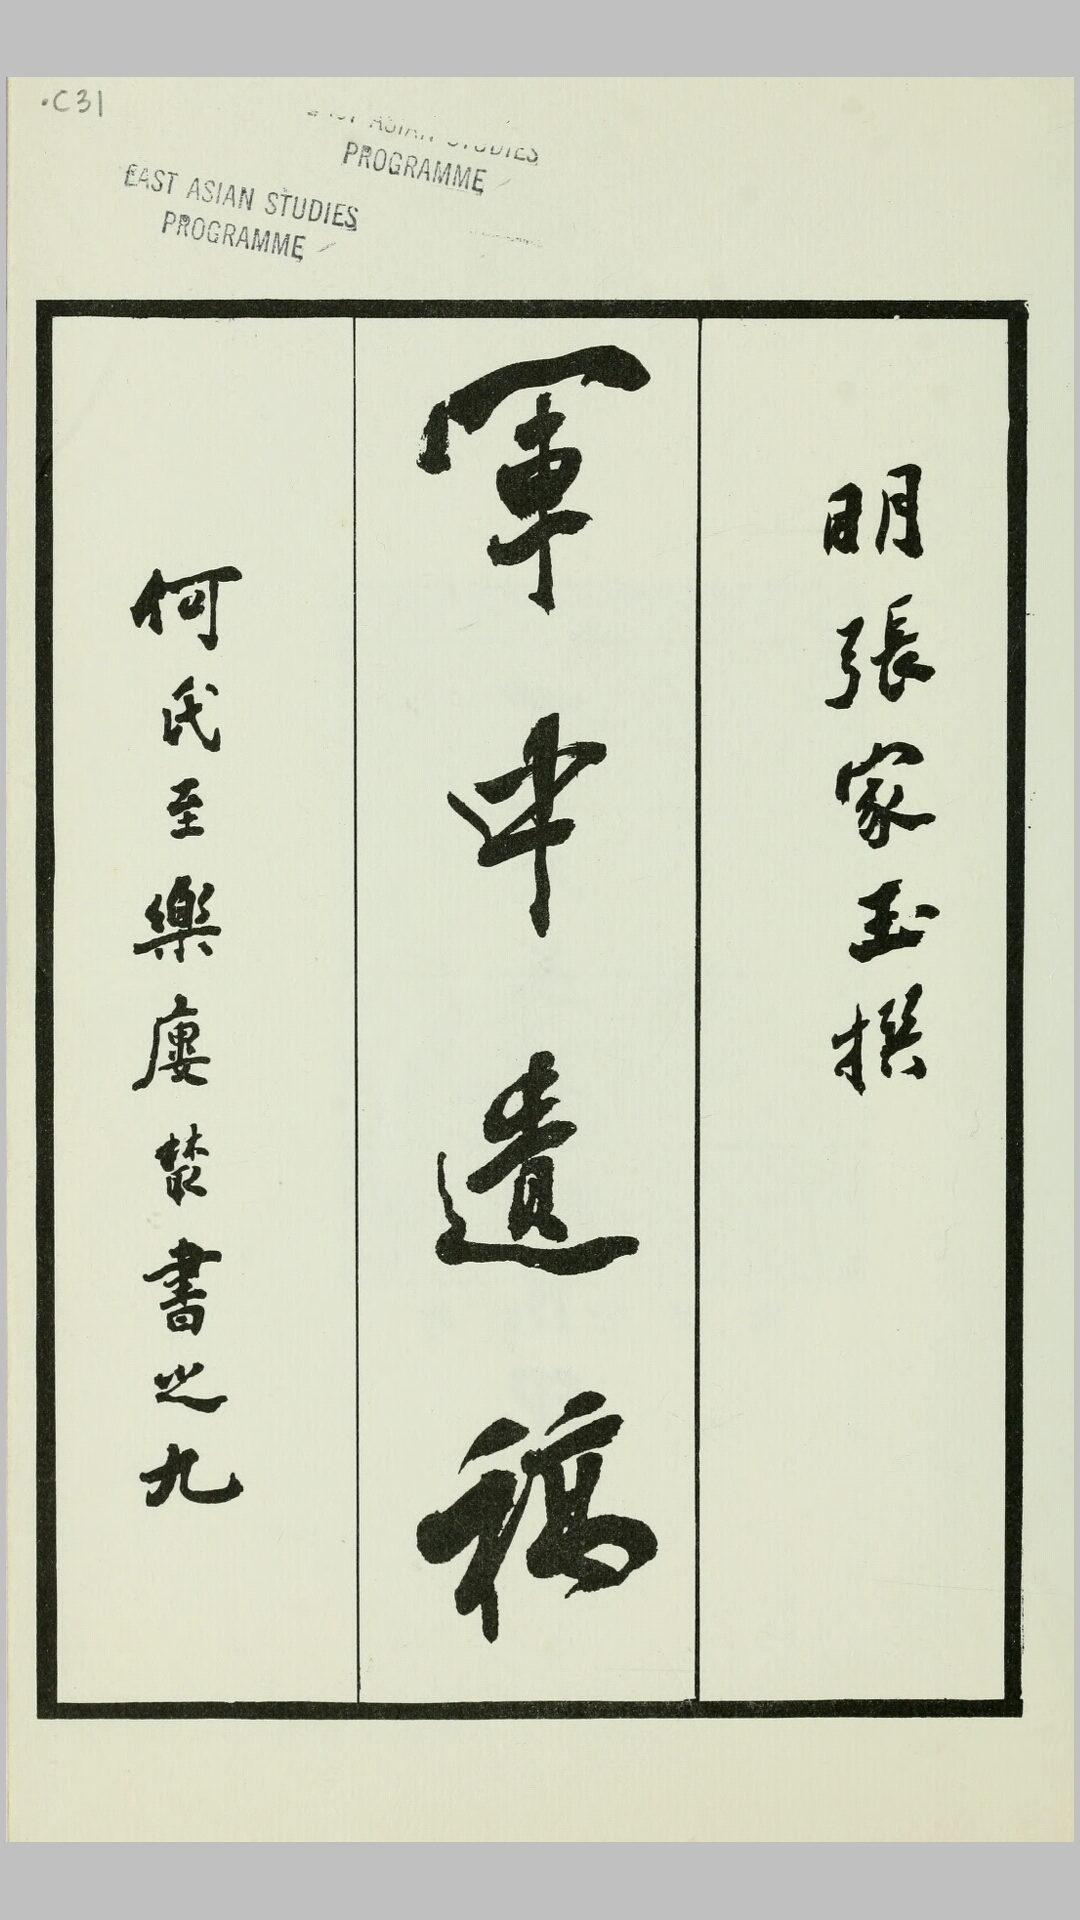 ·C31
EAST ASIAN STUDIES
PROGRAMME
EAST ASIAN STUDIES
PROGRAMME
明張家玉撰
軍中遺稿
何氏至樂廔叢書之九